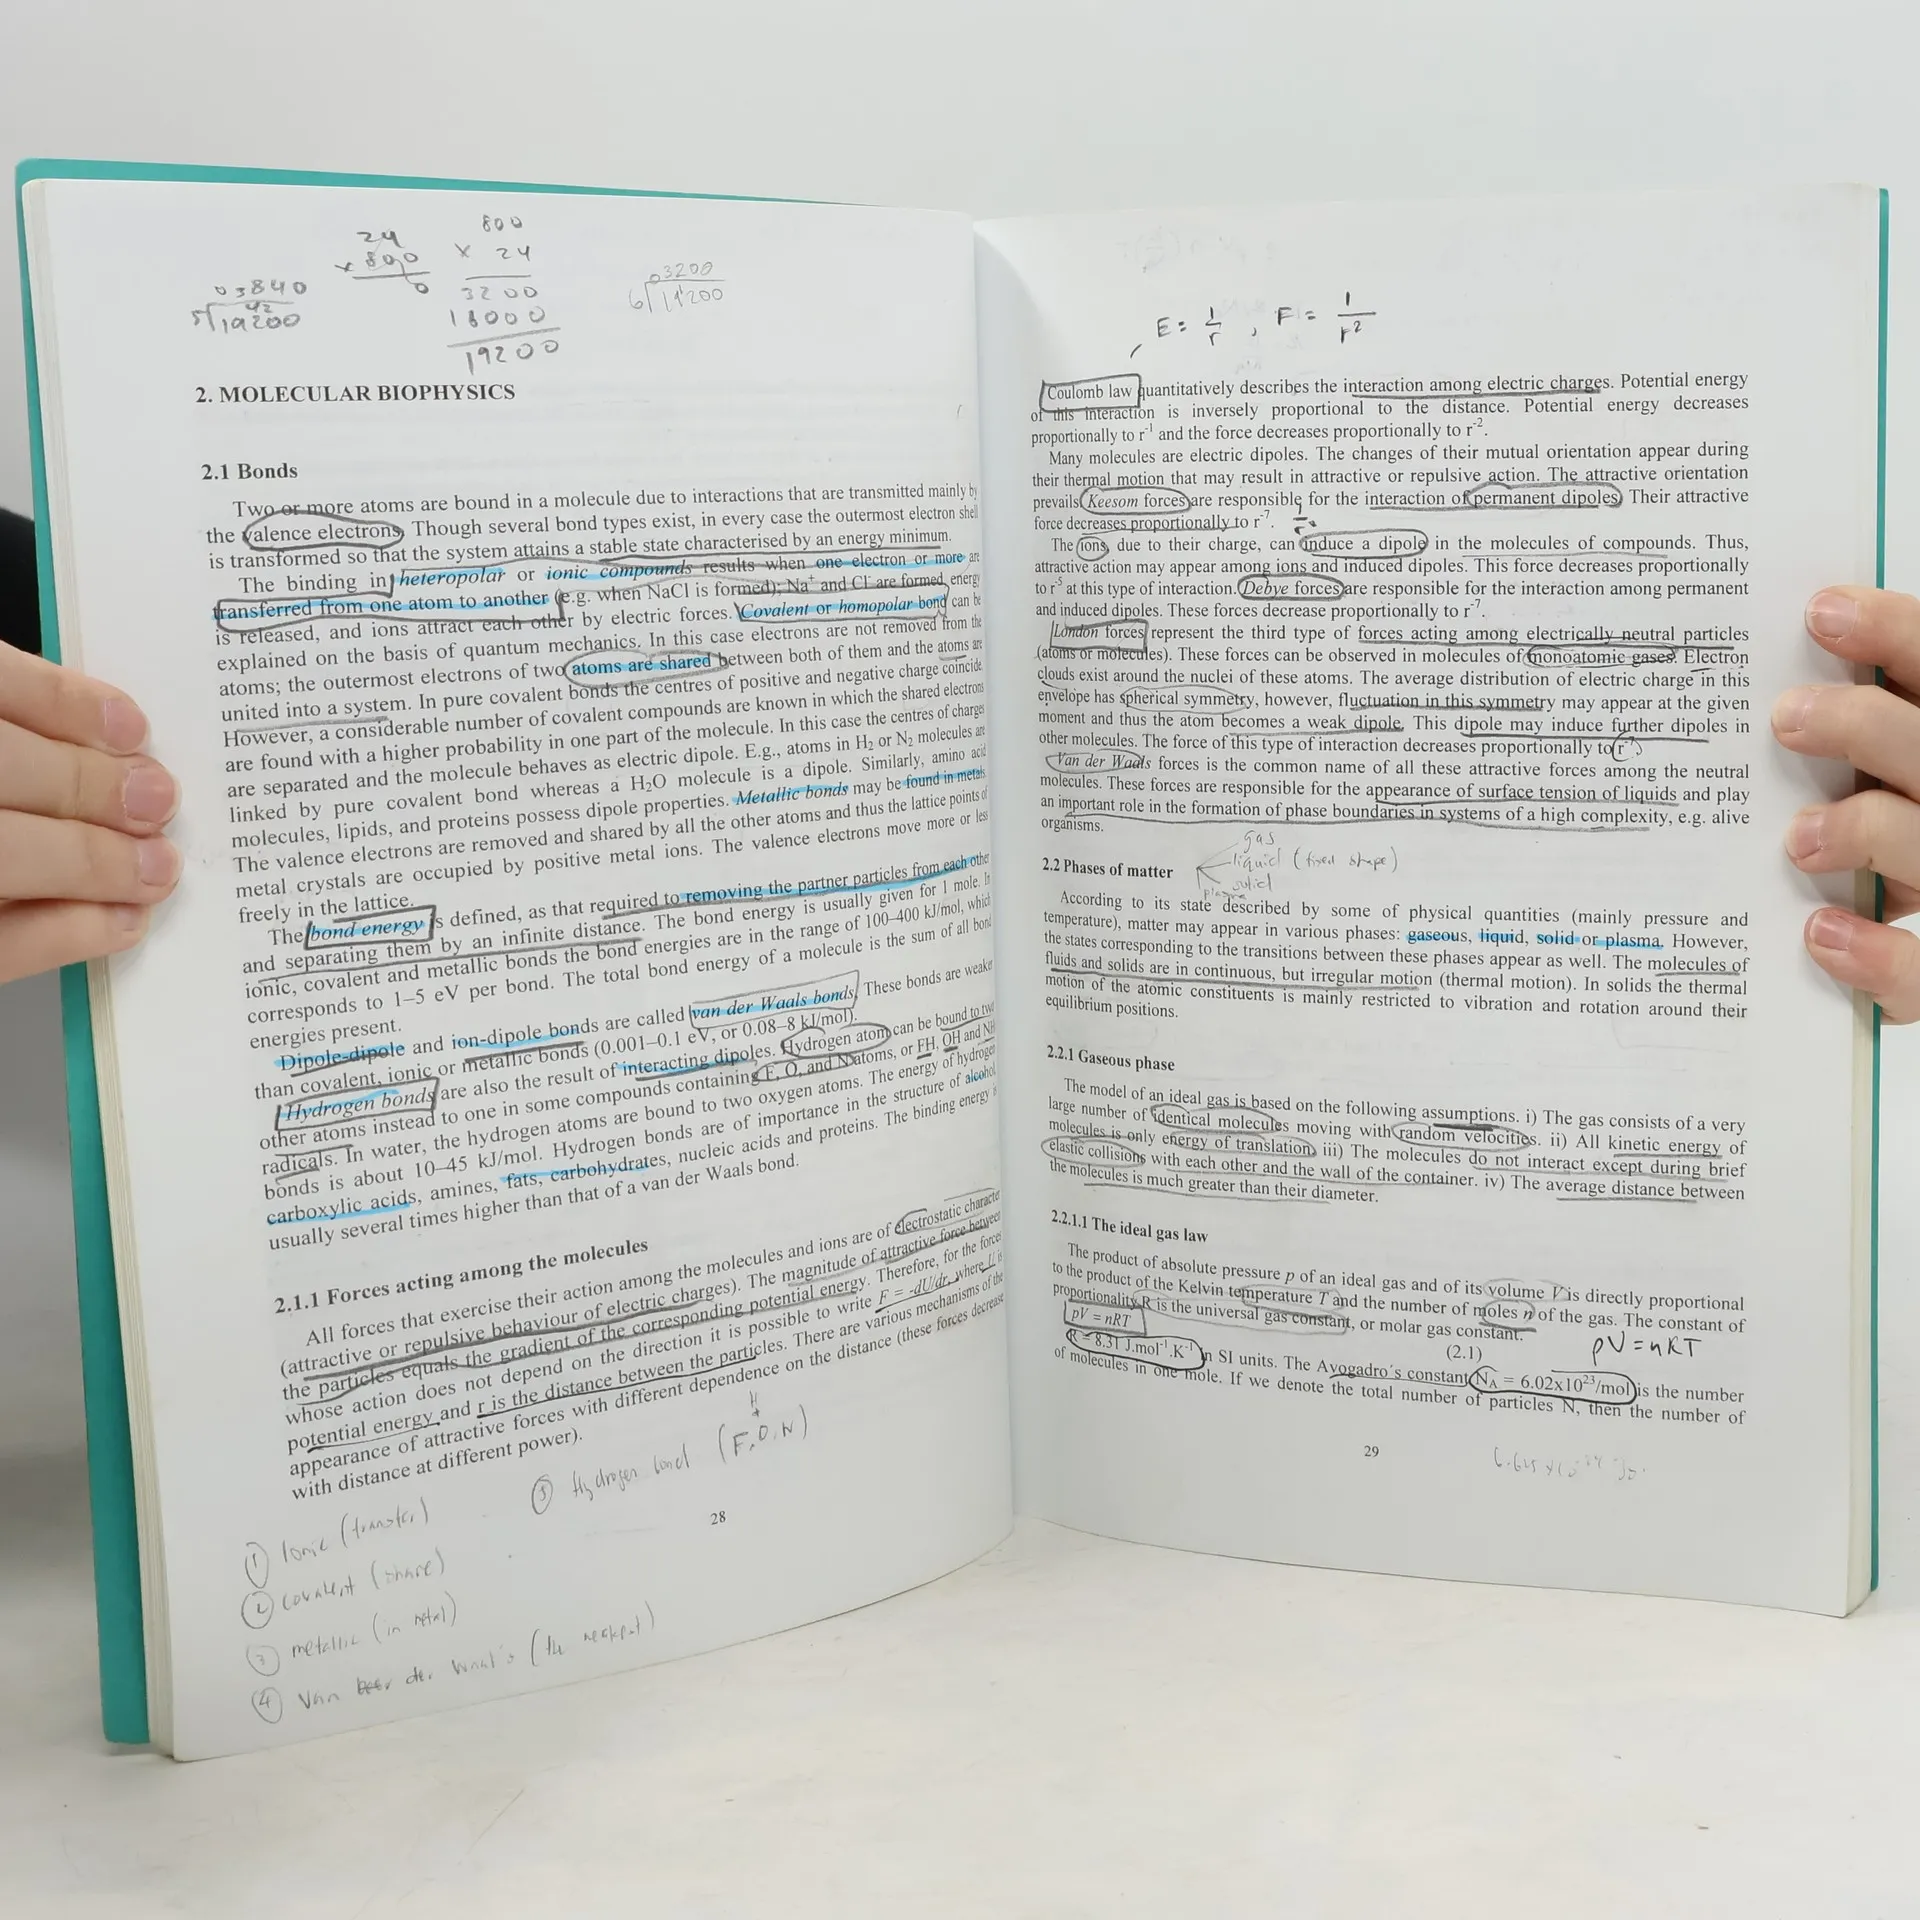 24
× 800
0
800
× 24
3200
16000
19200
03840
5 19200
03200
6 19200
2. MOLECULAR BIOPHYSICS
2.1 Bonds
Two or more atoms are bound in a molecule due to interactions that are transmitted mainly by
the valence electrons. Though several bond types exist, in every case the outermost electron shell
is transformed so that the system attains a stable state characterised by an energy minimum.
The binding in heteropolar or ionic compounds results when one electron or more are
transferred from one atom to another (e.g. when NaCl is formed); Na⁺ and Cl⁻ are formed, energy
is released, and ions attract each other by electric forces. Covalent or homopolar bond can be
explained on the basis of quantum mechanics. In this case electrons are not removed from the
atoms; the outermost electrons of two atoms are shared between both of them and the atoms are
united into a system. In pure covalent bonds the centres of positive and negative charge coincide.
However, a considerable number of covalent compounds are known in which the shared electrons
are found with a higher probability in one part of the molecule. In this case the centres of charges
are separated and the molecule behaves as electric dipole. E.g., atoms in H₂ or N₂ molecules are
linked by pure covalent bond whereas a H₂O molecule is a dipole. Similarly, amino acid
molecules, lipids, and proteins possess dipole properties. Metallic bonds may be found in metals.
The valence electrons are removed and shared by all the other atoms and thus the lattice points of
metal crystals are occupied by positive metal ions. The valence electrons move more or less
freely in the lattice.
The bond energy is defined, as that required to removing the partner particles from each other
and separating them by an infinite distance. The bond energy is usually given for 1 mole. In
ionic, covalent and metallic bonds the bond energies are in the range of 100–400 kJ/mol, which
corresponds to 1–5 eV per bond. The total bond energy of a molecule is the sum of all bond
energies present.
Dipole-dipole and ion-dipole bonds are called van der Waals bonds. These bonds are weaker
than covalent, ionic or metallic bonds (0.001–0.1 eV, or 0.08–8 kJ/mol).
Hydrogen bonds are also the result of interacting dipoles. Hydrogen atom can be bound to two
other atoms instead to one in some compounds containing F, O, and N atoms, or FH, OH and NH
radicals. In water, the hydrogen atoms are bound to two oxygen atoms. The energy of hydrogen
bonds is about 10–45 kJ/mol. Hydrogen bonds are of importance in the structure of alcohol,
carboxylic acids, amines, fats, carbohydrates, nucleic acids and proteins. The binding energy is
usually several times higher than that of a van der Waals bond.
2.1.1 Forces acting among the molecules
All forces that exercise their action among the molecules and ions are of electrostatic character
(attractive or repulsive behaviour of electric charges). The magnitude of attractive force between
the particles equals the gradient of the corresponding potential energy. Therefore, for the forces
whose action does not depend on the direction it is possible to write F = -dU/dr, where U is
potential energy and r is the distance between the particles. There are various mechanisms of the
appearance of attractive forces with different dependence on the distance (these forces decrease
with distance at different power).
28
① Ionic (transfer)
② covalent (share)
③ metallic (in metal)
④ Van der Waal's (the weakest)
⑤ Hydrogen bond (F, O, N)
H
E = 1/r , F = 1/r²
Coulomb law quantitatively describes the interaction among electric charges. Potential energy
of this interaction is inversely proportional to the distance. Potential energy decreases
proportionally to r⁻¹ and the force decreases proportionally to r⁻².
Many molecules are electric dipoles. The changes of their mutual orientation appear during
their thermal motion that may result in attractive or repulsive action. The attractive orientation
prevails. Keesom forces are responsible for the interaction of permanent dipoles. Their attractive
force decreases proportionally to r⁻⁷.
The ions, due to their charge, can induce a dipole in the molecules of compounds. Thus,
attractive action may appear among ions and induced dipoles. This force decreases proportionally
to r⁻⁵ at this type of interaction. Debye forces are responsible for the interaction among permanent
and induced dipoles. These forces decrease proportionally to r⁻⁷.
London forces represent the third type of forces acting among electrically neutral particles
(atoms or molecules). These forces can be observed in molecules of monoatomic gases. Electron
clouds exist around the nuclei of these atoms. The average distribution of electric charge in this
envelope has spherical symmetry, however, fluctuation in this symmetry may appear at the given
moment and thus the atom becomes a weak dipole. This dipole may induce further dipoles in
other molecules. The force of this type of interaction decreases proportionally to r⁻⁷.
Van der Waals forces is the common name of all these attractive forces among the neutral
molecules. These forces are responsible for the appearance of surface tension of liquids and play
an important role in the formation of phase boundaries in systems of a high complexity, e.g. alive
organisms.
2.2 Phases of matter
gas
liquid (fixed shape)
solid
plasma
According to its state described by some of physical quantities (mainly pressure and
temperature), matter may appear in various phases: gaseous, liquid, solid or plasma. However,
the states corresponding to the transitions between these phases appear as well. The molecules of
fluids and solids are in continuous, but irregular motion (thermal motion). In solids the thermal
motion of the atomic constituents is mainly restricted to vibration and rotation around their
equilibrium positions.
2.2.1 Gaseous phase
The model of an ideal gas is based on the following assumptions. i) The gas consists of a very
large number of identical molecules moving with random velocities. ii) All kinetic energy of
molecules is only energy of translation. iii) The molecules do not interact except during brief
elastic collisions with each other and the wall of the container. iv) The average distance between
the molecules is much greater than their diameter.
2.2.1.1 The ideal gas law
The product of absolute pressure p of an ideal gas and of its volume V is directly proportional
to the product of the Kelvin temperature T and the number of moles n of the gas. The constant of
proportionality R is the universal gas constant, or molar gas constant.
pV = nRT (2.1)
pV = nRT
R = 8.31 J.mol⁻¹.K⁻¹ in SI units. The Avogadro´s constant N_A = 6.02x10²³/mol is the number
of molecules in one mole. If we denote the total number of particles N, then the number of
29